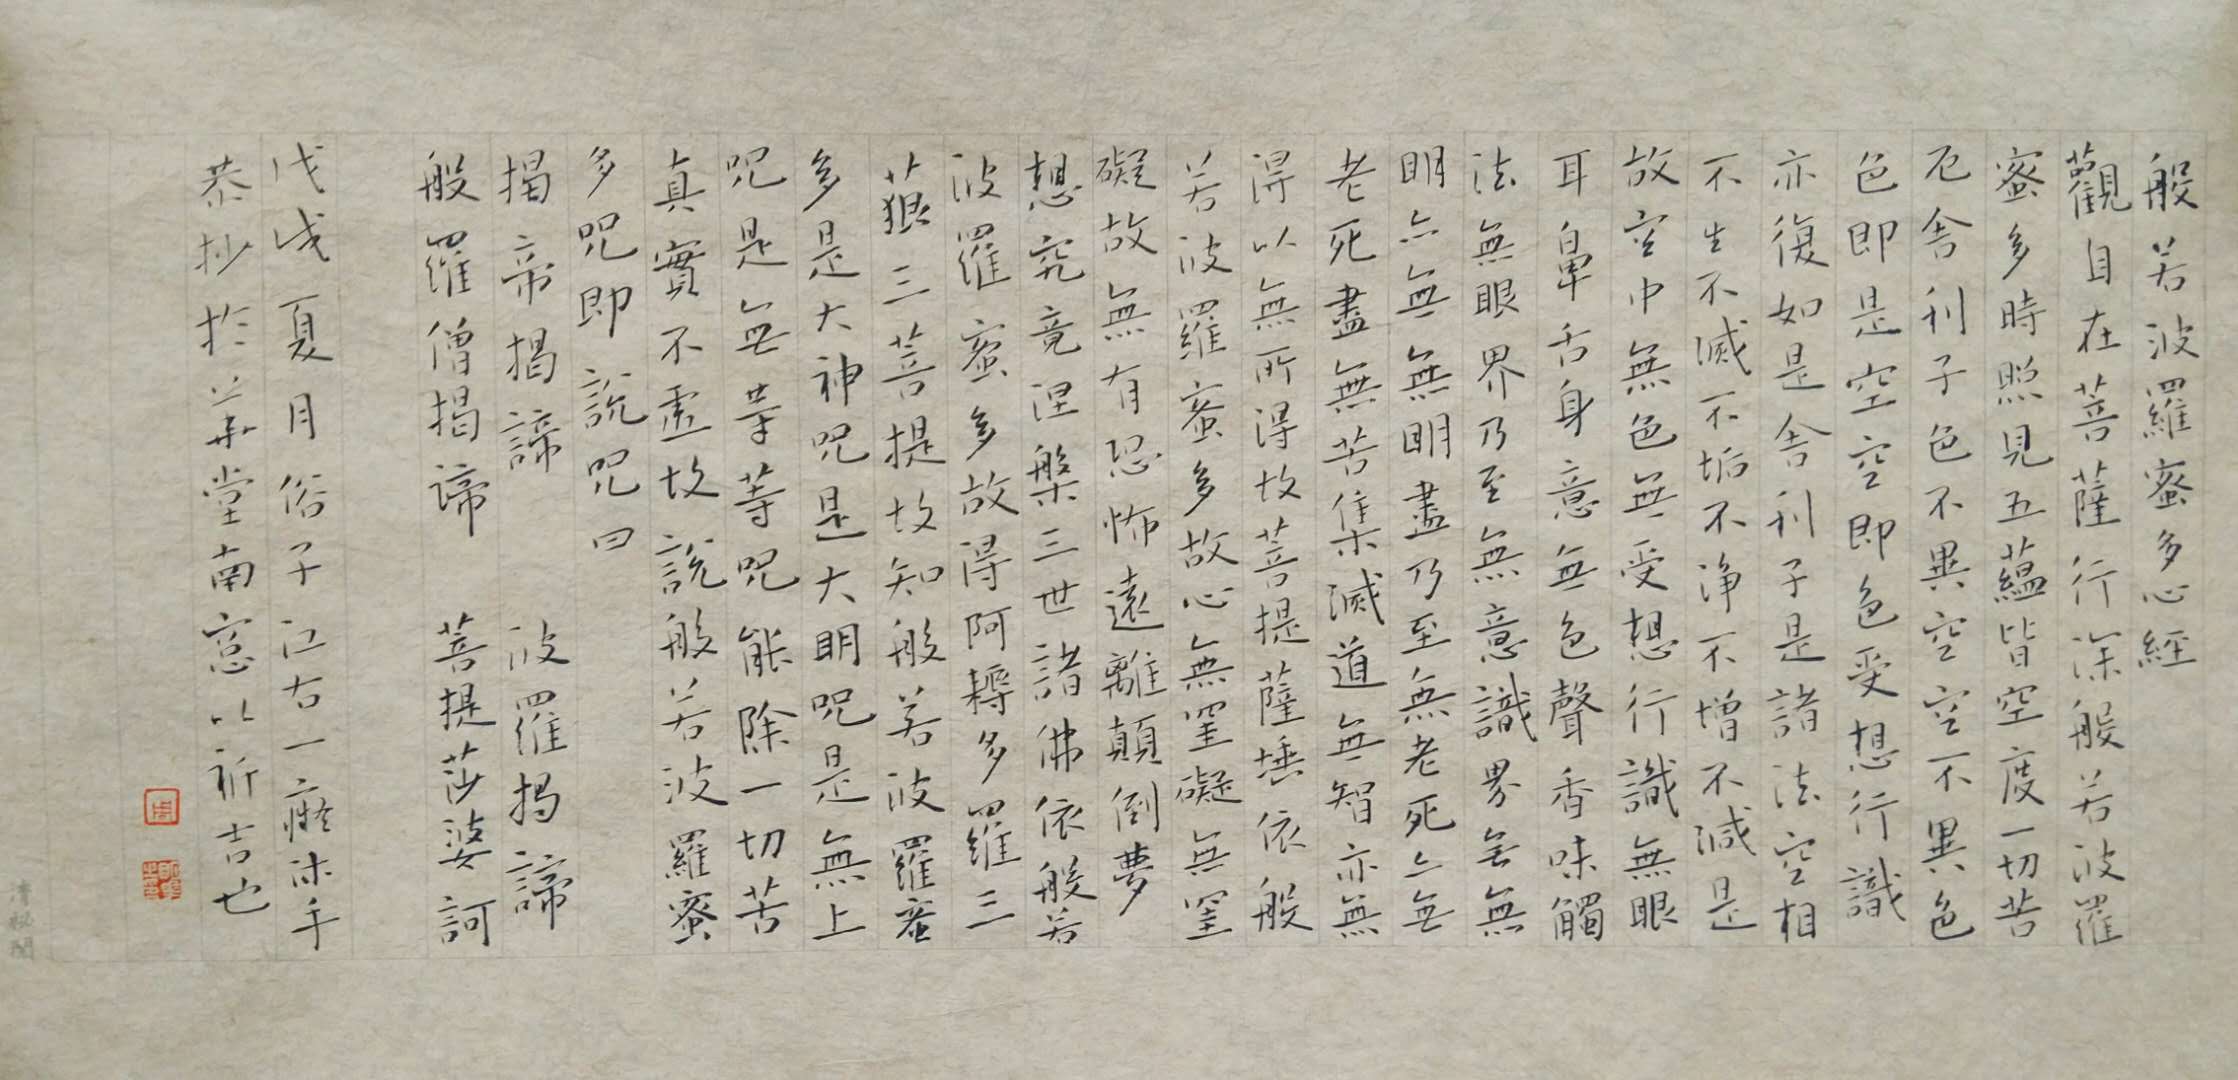 般若波羅蜜多心經
觀自在菩薩行深般若波羅
蜜多時照見五蘊皆空度一切苦
厄舍利子色不異空空不異色
色即是空空即色受想行識
亦復如是舍利子是諸法空相
不生不滅不垢不淨不增不減是
故空中無色無受想行識無眼
耳鼻舌身意無色聲香味觸
法無眼界乃至無意識界無無
明亦無無明盡乃至無老死亦無
老死盡無苦集滅道無智亦無
得以無所得故菩提薩埵依般
若波羅蜜多故心無罣礙無罣
礙故無有恐怖遠離顛倒夢
想究竟涅槃三世諸佛依般若
波羅蜜多故得阿耨多羅三
藐三菩提故知般若波羅蜜
多是大神咒是大明咒是無上
咒是無等等咒能除一切苦
真實不虛故說般若波羅蜜
多咒即說咒曰
揭帝揭諦 波羅揭諦
般羅僧揭諦 菩提莎婆訶
戊戌夏月俗子江右一癡沐手
恭抄於華堂南窓以祈吉也
清秘閣